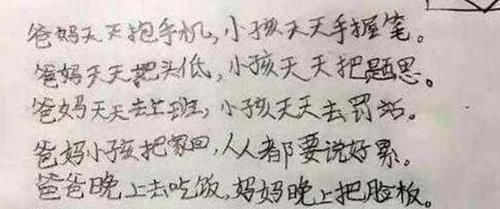 爸妈天天抱手机，小孩天天手握笔。
爸妈天天把头低，小孩天天把题思。
爸妈天天去上班，小孩天天去罚站。
爸妈小孩把家回，人人都要说好累。
爸爸晚上去吃饭，妈妈晚上把脸板。